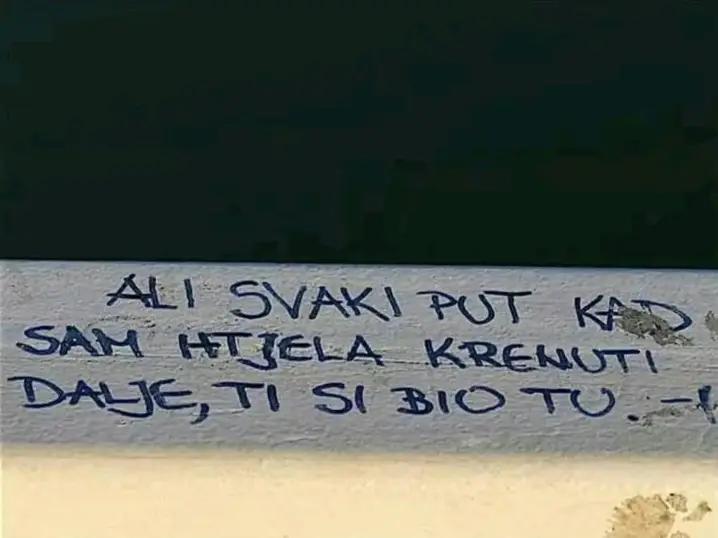 ALI SVAKI PUT KAD
SAM HTJELA KRENUTI
DALJE, TI SI BIO TU. -